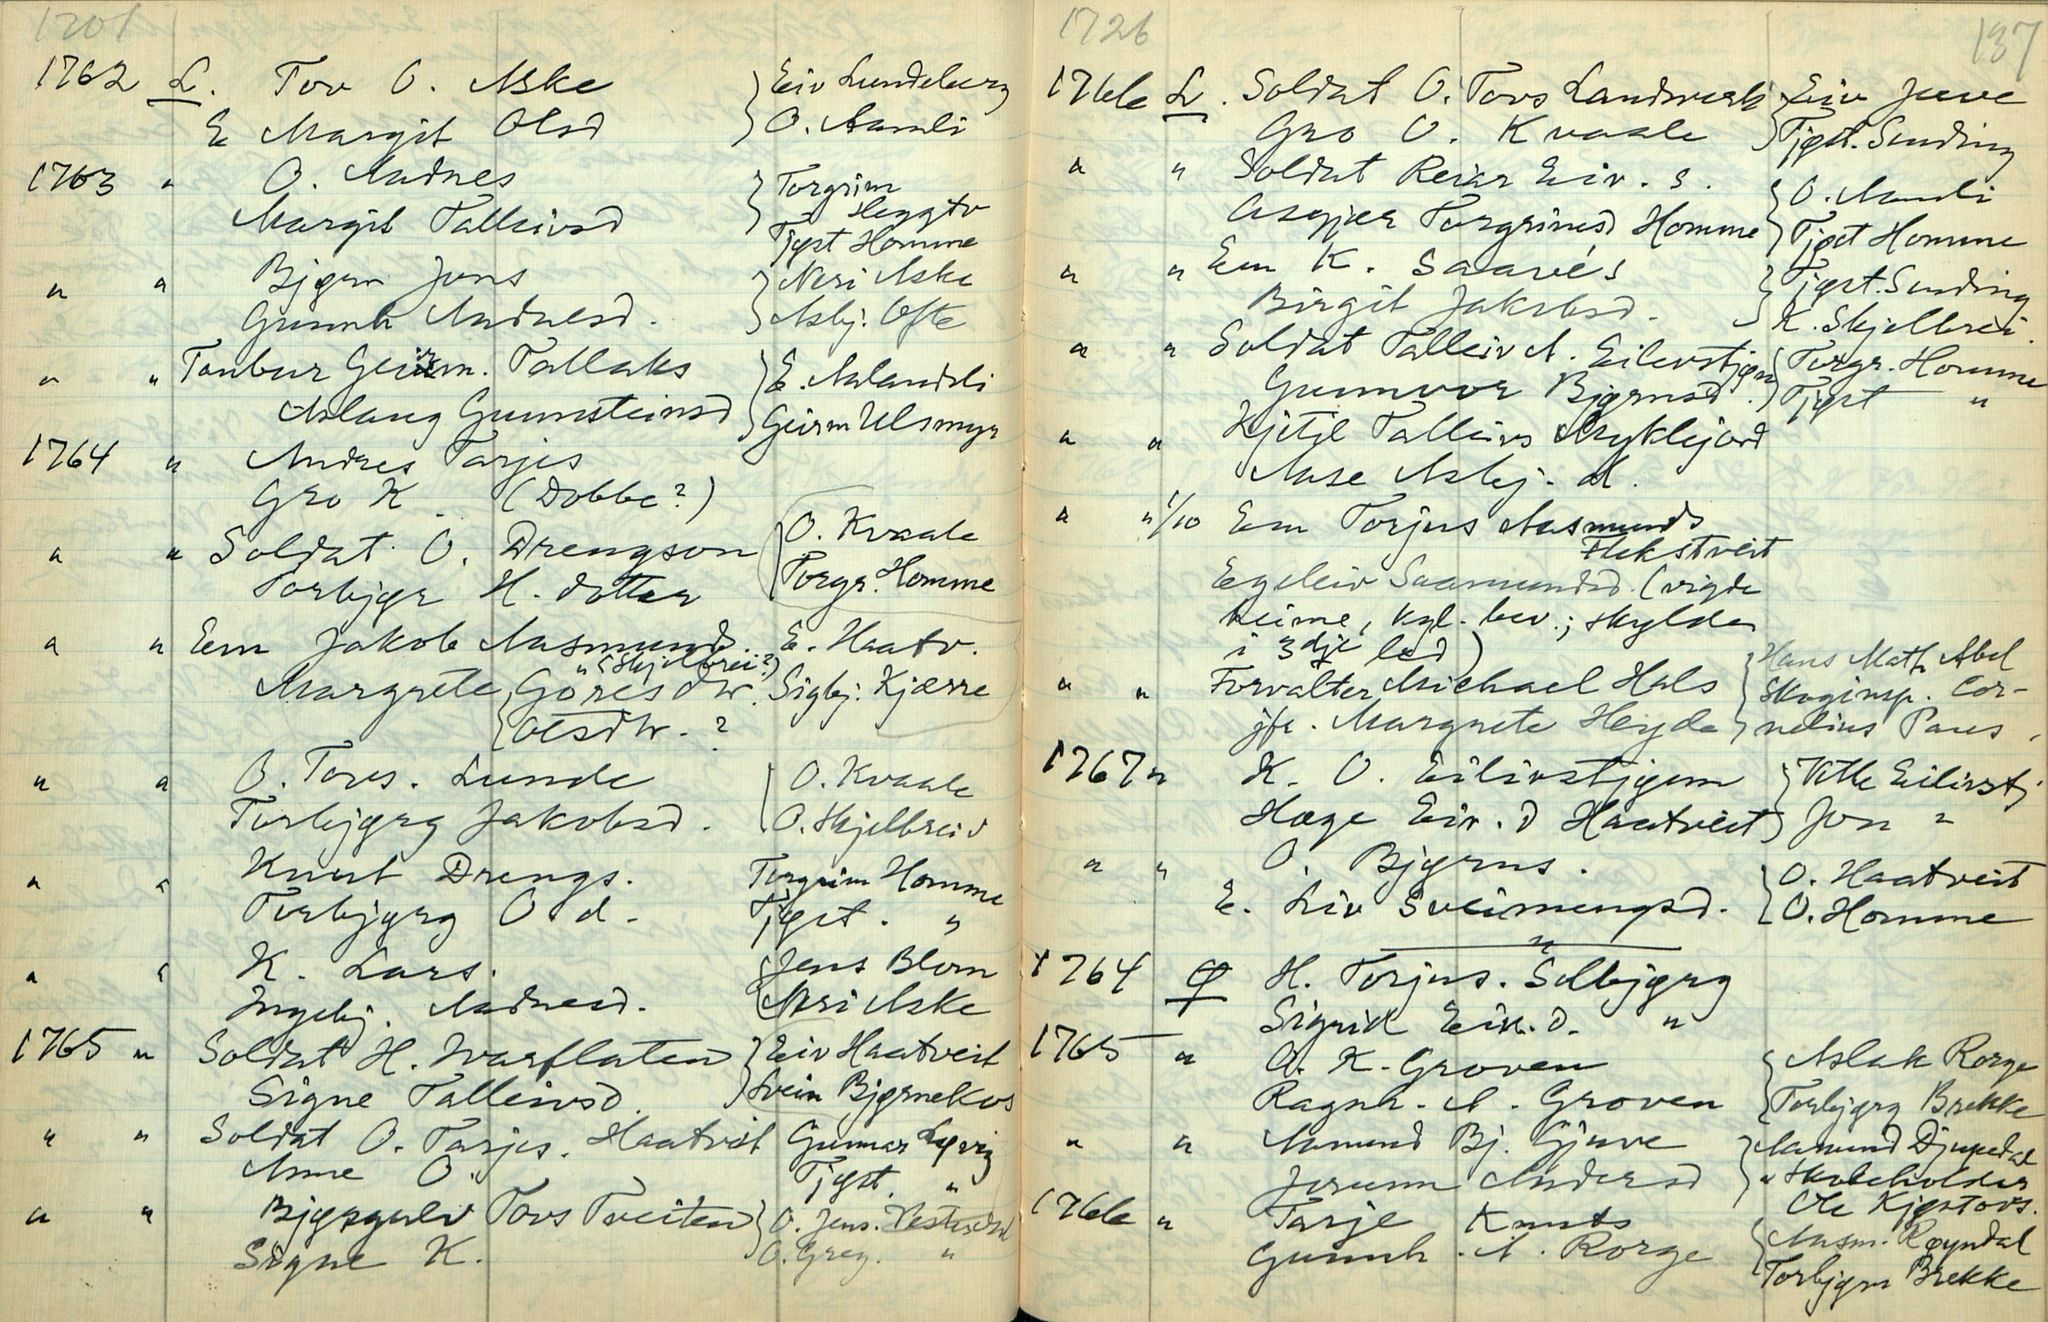 1701
1762 L. Tov O. Aske } Eiv Lundeberg
E Margit Olsd } O. Aamli
1763 " O. Andres } Torgrim Heggtv
Margit Talleivsd } Tjost Homme
" " Bjørn Jons } Neri Aske
Gunnh Andresd. } Asbj. Ofte
" " Tanbur Geirm. Tallaks } E. Aslandsli
Aslaug Gunnsteinsd } Geirm Ulsmyr
1764 " Andres Tarjes
Gro K. (Dobbe?)
" " Soldat O. Drengson { O. Kvaale
Torbjør H. dotter { Torgr. Homme
" " Em Jakob Aasmunds. E. Haatv.
" (Skjelbrei?)
Margrete { Göresdtr. Sigbj. Kjærre
{ Olsdtr. ?
" " O. Tovs. Lunde { O. Kvaale
Torbjørg Jakobsd. { O. Skjelbreid
" " Knut Drengs. Torgrim Homme
Torbjørg O d. Tjøst. "
" " K. Lars. { Jens Blom
Ingebj. Andresd. { Neri Aske
1765 " Soldat H. Ivarflaten } Eiv Haatveit
Signe Talleivsd. } Svein Bjørnekos
" " Soldat O. Tarjes. Haatveit Gunnar
Anne O. Tjøst. "
" " Bjørgulv Tovs Tveiten } O. Jens.
Signe K. } O. Greg. "
1726 137
1766 L. Soldat O. Tovs Landverk } Eiv Juve
Gro O. Kvaale } Tjøst. Sunding
" " Soldat Reiar Eiv. s. { O. Aamli
Asgjær Torgrimsd Homme } Tjøst Homme
" " Em K. Saave's } Tjøst. Sunding
Birgit Jakobsd. } K. Skjelbrei.
" " Soldat Talleiv A. Eilevstjønn { Torgr. Homme
Gunnvor Bjørnsd. ) Tjøst "
" " Kjetil Talleivs Myklejord
Aase Asbj. d.
" " 1/10 Em Torjus Aasmunds
Flekstveit
Egeleiv Saamundsd. (vigde
heime, kgl. bev.; skylde
i 3dje led)
" " Forvalter Michael Hals { Hans Math. Abel
jfr. Margrete Heyde } Skoginsp. Cor-
nelius Paus.
1767 " K. O. Eilivstjønn } Vetle Eilivstj
Hæge Eiv. d Haatveit ) Jon "
" " O. Bjørns. { O. Haatveit
E. Liv Sveinungsd. { O. Homme
"
1764 H. Torjus. Solbjørg
Sigrid Eik. d. "
1765 " O. K. Groven { Aslak Rorge
Ragnh. A. Groven { Torbjørg Brekke
" " Aamund Bj. Gjuve } Aamund Djupedal
Jorunn Andersd } " Skoleholder
Ole Kjøstovs.
1766 " Tarje Knuts { Aasm. Røyndal
Gunnh. A. Rorge { Torbjørn Brekke